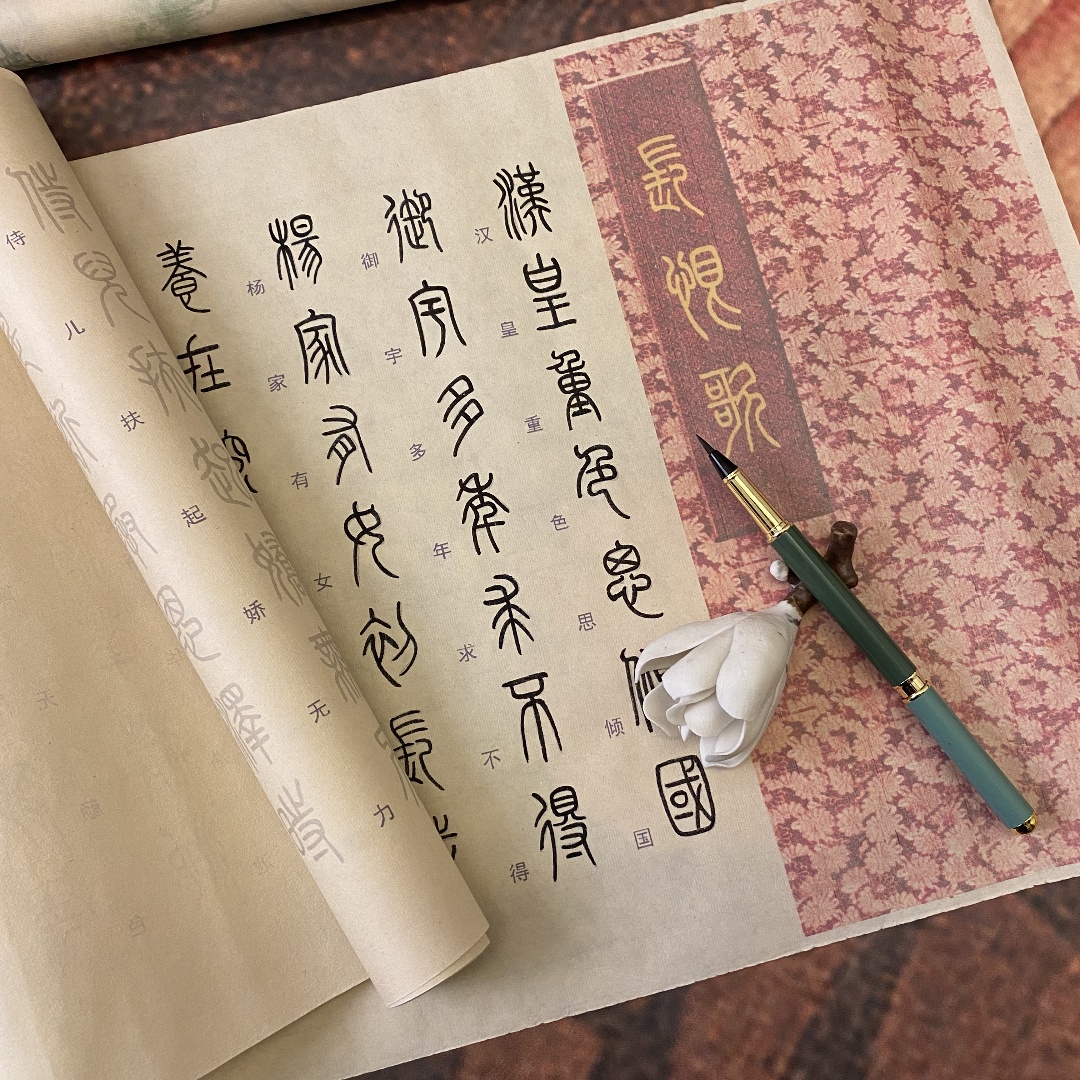 長恨歌
漢皇重色思傾國
汉皇重色思倾国
御宇多年求不得
御宇多年求不得
楊家有女初長
杨家有女
養在
侍兒扶起嬌無
侍儿扶起娇无力
新承恩澤時